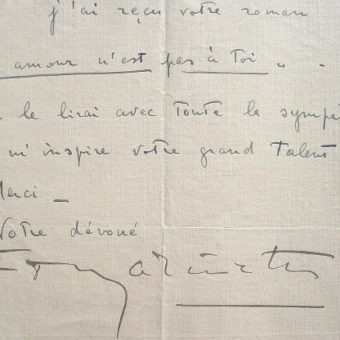 j'ai reçu votre roman
amour n'est pas à toi " -
le lirai avec toute la sympa
m'inspire votre grand talent
Merci _
Votre dévoué